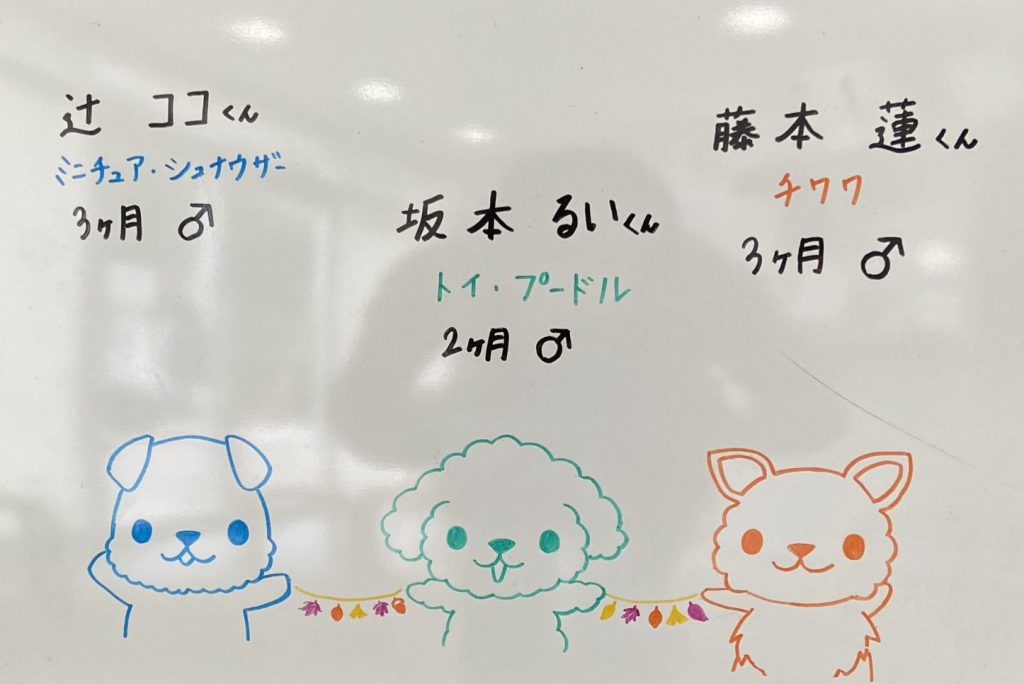 辻 ココくん
ミニチュア・シュナウザー
3ヶ月 ♂
坂本 るいくん
トイ・プードル
2ヶ月 ♂
藤本 蓮くん
チワワ
3ヶ月 ♂